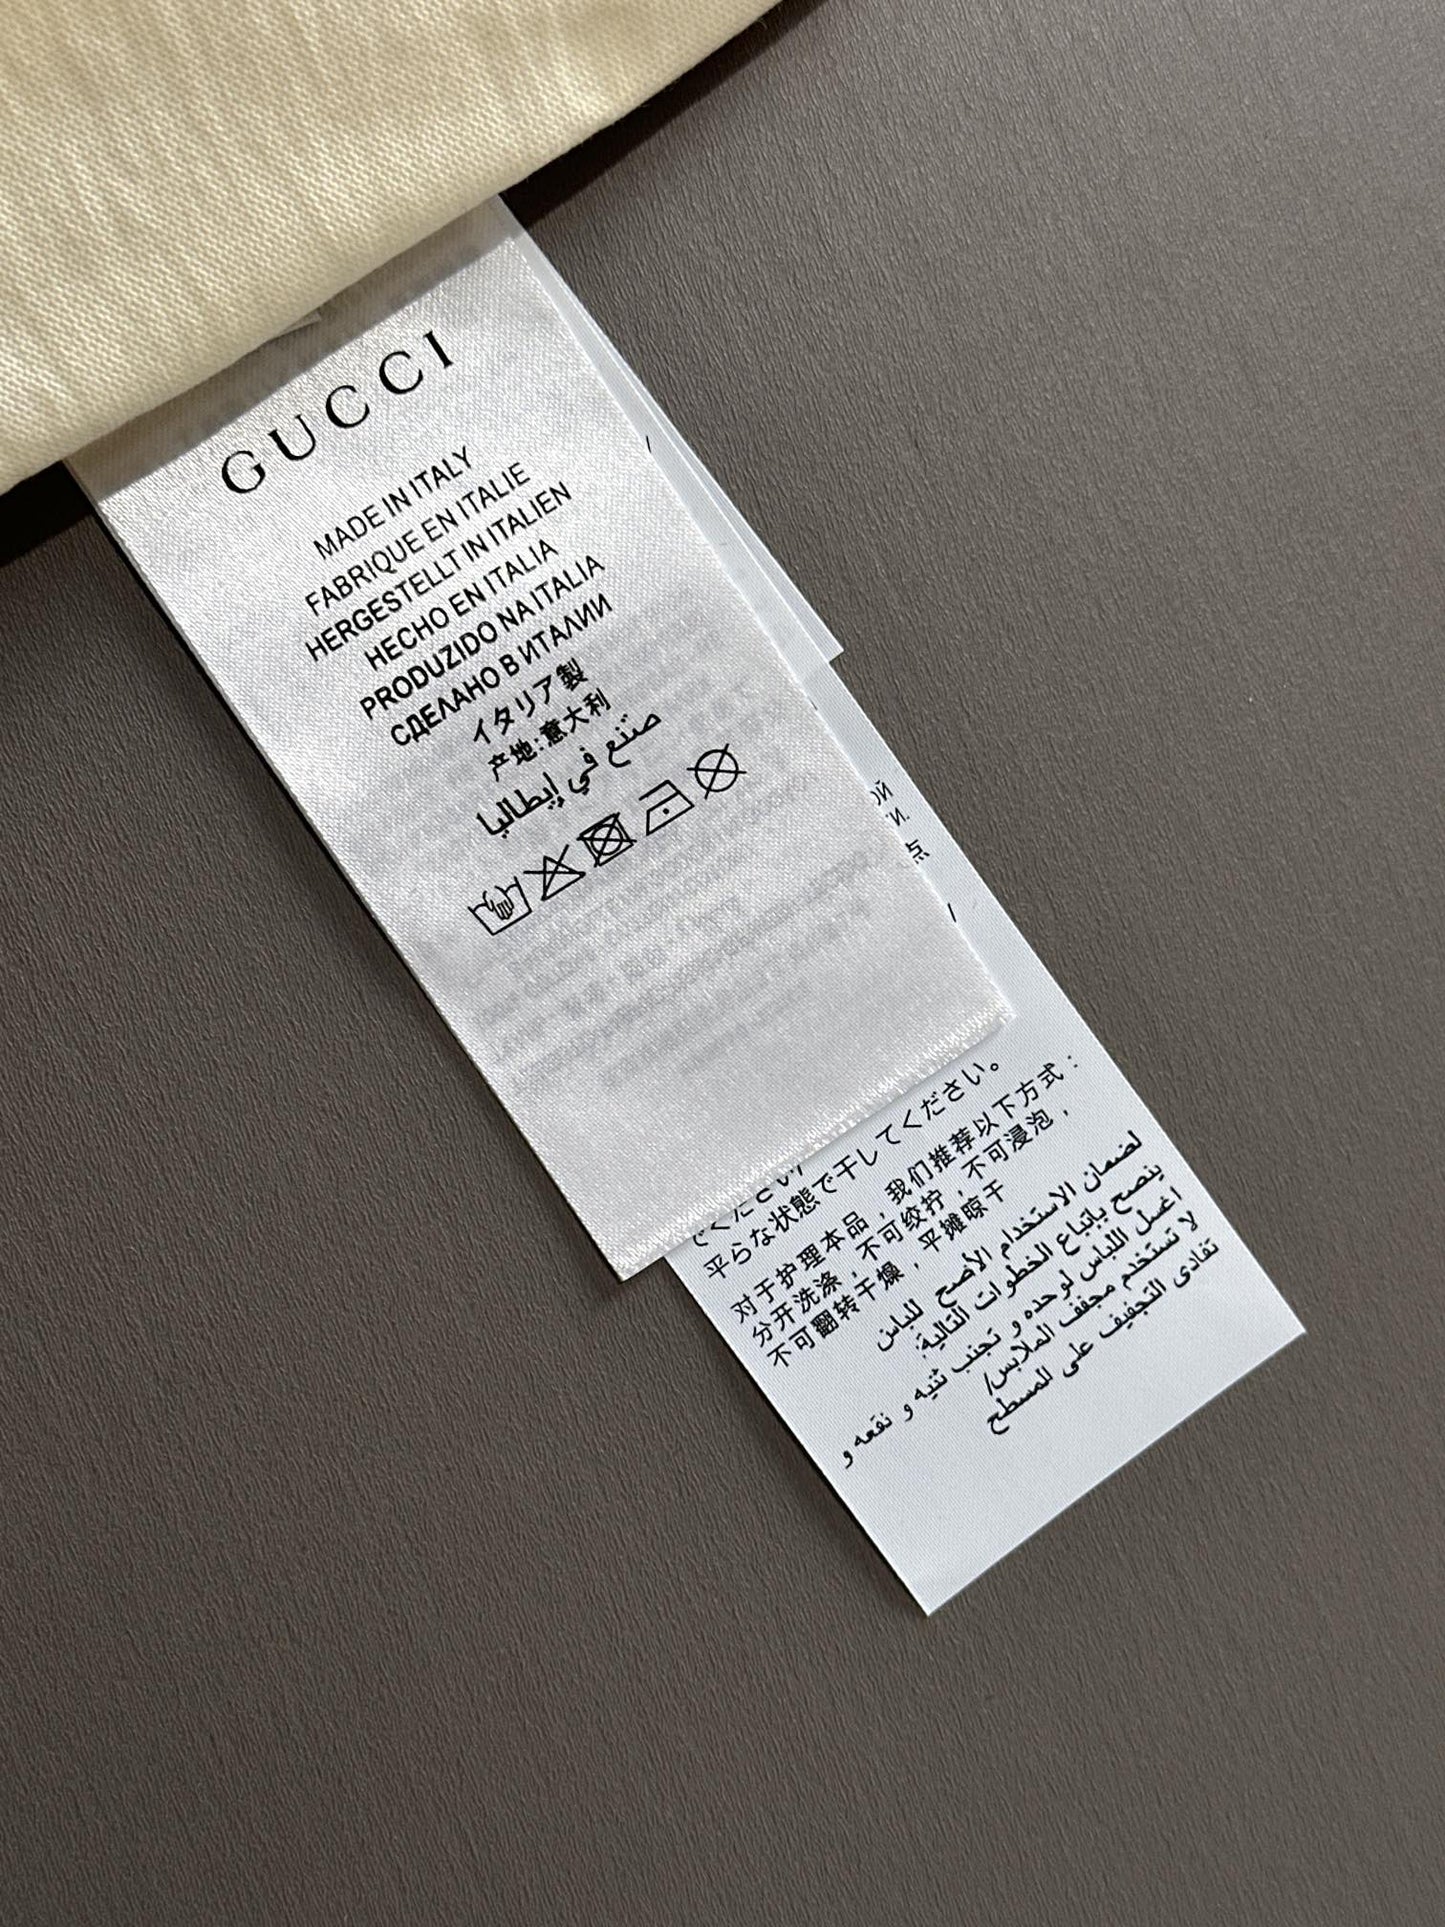 GUCCI
MADE IN ITALY
FABRIQUE EN ITALIE
HERGESTELLT IN ITALIEN
HECHO EN ITALIA
PRODUZIDO NA ITALIA
СДЕЛАНО В ИТАЛИИ
イタリア製
产地:意大利
صنع في إيطاليا
ОЙ
И.
点
でください
平らな状態で干してください。
对于护理本品，我们推荐以下方式：
分开洗涤，不可绞拧，不可浸泡，
不可翻转干燥，平摊晾干
لضمان الاستخدام الأصح للباس
ينصح بإتباع الخطوات التالية:
اغسل اللباس لوحده و تجنب ثنيه و نقعه و
لا تستخدم مجفف الملابس/
تفادى التجفيف على المسطح